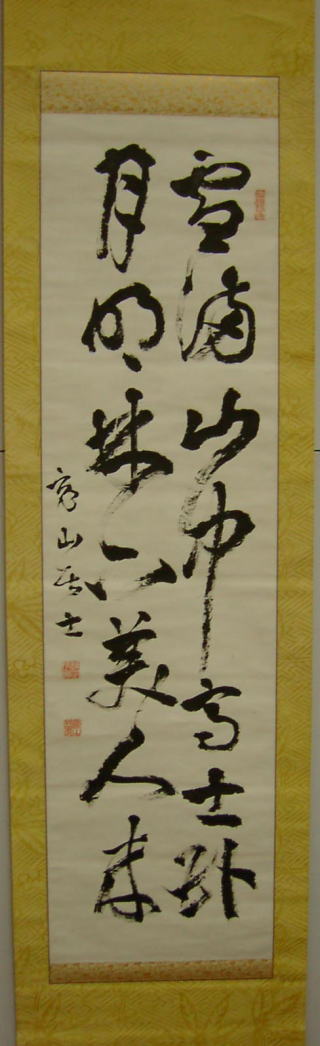 雪満山中高士臥
月明林下美人来
山居士